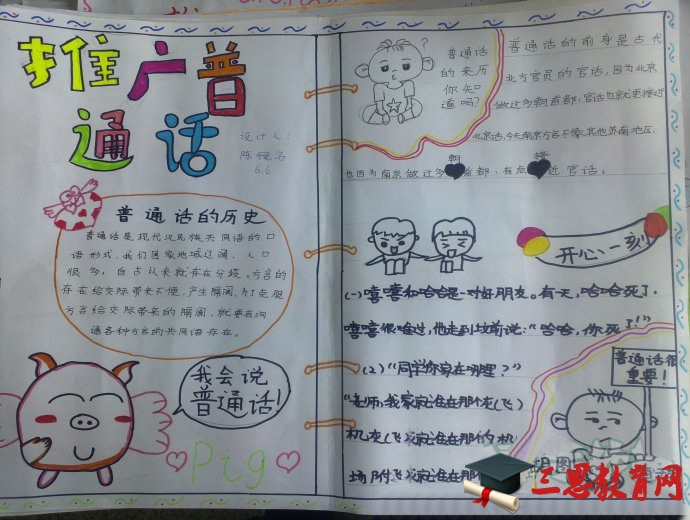 推广普
通话
设计人：
6.6
普通话的历史
普通话是现代汉民族共同语的口
语形式。我们国家地域辽阔，人口
很多，自古以来就存在分歧。方言的
存在给交际带来不便，产生隔阂，为了克服
方言给交际带来的隔阂，就要有沟
通各种方言的共同语存在。
我会说
普通话！
Pig
?
普通话
的来历
你知
道吗？
普通话的前身是古代
北方官员的官话，因为北京
做过多朝首都，官话也就更接近
北京话，今天南京方言不像其他苏南地区，
也因为南京做过多朝首都，有点接近官话。
开心一刻
(一)嘻嘻和哈哈是一对好朋友。有天，哈哈死了，
嘻嘻很难过，他走到坟前说：“哈哈，你死了！”
(2)“同学你家在哪里？”
“老师，我家就住在那个灰(飞)
机灰(飞)就住在那个机
场附(飞)就住在那
普通话很
重要！
三思教育网